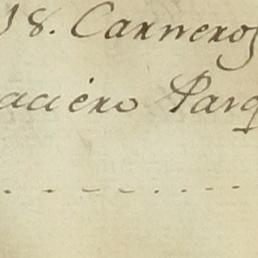 18. Carneros
aciéro Parq